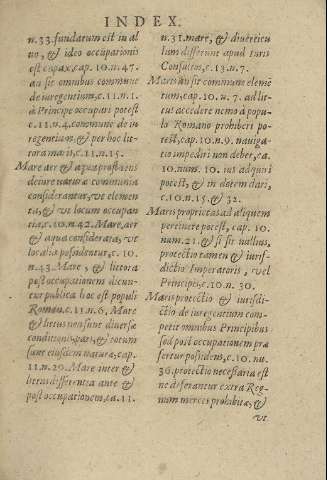 INDEX.
n.33. fundatum est in al
uo, & ideo occupationis
est capax, cap. 10. n.47.
an sit omnibus commune
de iure gentium, c.11. n.1.
à Principe occupari potest
c.11. n.4. commune de iu
re gentium, & per hoc lit-
tora maris, c.11. n.15.
Mare aer & aqua profluens
de iure naturæ communia
considerantur, vt elemen
ta, & vt locum occupan
tia, c.10. n.42. Mare, aer
& aqua considerata, vt
localia possidentur, c.10.
n.43. Mare, & littora
post occupationem dicun-
tur publica hoc est populi
Romæ. c.11. n.6. Mare
& littus non sunt diuersæ
conditionis, pari, & totum
sunt eiusdem naturæ, cap.
11. n.20. Mare inter &
littus differentia ante &
post occupationem, ca.11.
n.31. mare, & diuerticu
lum differunt apud Iuris
Consultos, c.13. n.7.
Maris an sit commune elemē
tum, cap. 10. u. 7. ad lit-
tus accedere nemo à popu-
lo Romano prohiberi po-
test, cap. 10. n.9. nauiga-
tio impediri non debet, ca.
10. num. 10. ius adquiri
potest, & in dotem dari,
c.10. n.15. & 32.
Maris proprietas ad aliquem
pertinere potest, cap. 10.
num. 21. & si sit nullius,
protectio tamen & iurif-
dictio Imperatoris, vel
Principis, c.10. n. 30.
Maris protectio & iurisdi-
ctio de iure gentium com-
petit omnibus Principibus
sed post occupationem præ
sertur possidens, c.10. nu.
36. protectio necessaria est
ne deferantur extra Reg-
num merces prohibitæ, &
vt